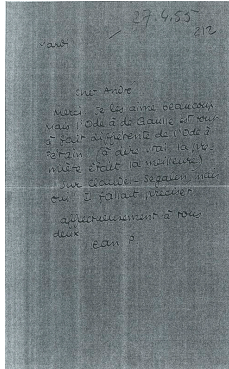 27.4.55
212
Mardi
Cher André
Merci. Je les aime beaucoup
mais l'Ode à de Gaulle est tout
à fait différente de l'Ode à
Pétain (à dire vrai la pre-
mière était la meilleure).
Sur Ségalen mais
oui il fallait préciser
affectueusement à tous
deux.
Jean P